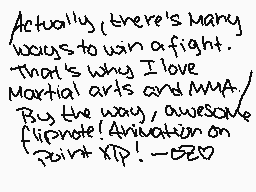 Actually, there's many
ways to win a fight.
That's why I love
martial arts and MMA.
By the way, awesome
flipnote! Animation on
point XP! -OZO